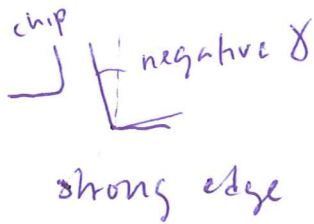 chip
negative γ
strong edge